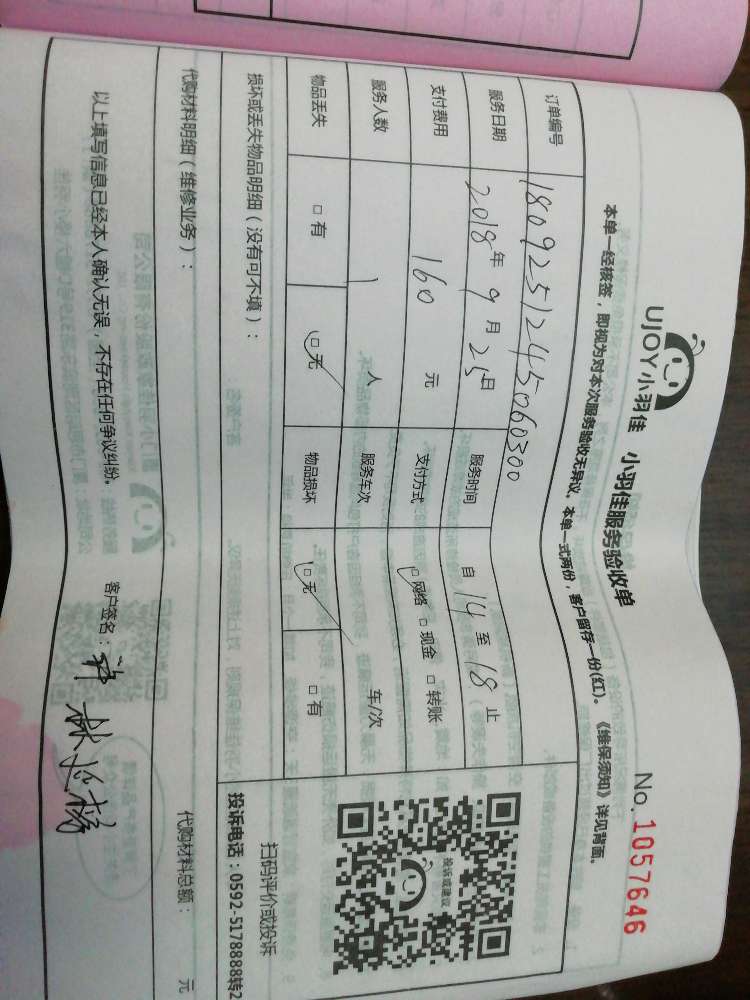 UJOY小羽佳 小羽佳服务验收单 No.1057646
本单一经核签，即视为对本次服务验收无异议。本单一式两份，客户留存一份(红)。《维保须知》详见背面。
订单编号 1809251245060300
服务日期 2018年9月25日 服务时间 自14至18止
支付费用 160元 支付方式 □网络 □现金 □转账
服务人数 1人 服务车次 车/次
物品丢失 □有 □无 物品损坏 □无 □有
损坏或丢失物品明细（没有可不填）：
投诉或建议
扫码评价或投诉
投诉电话：0592-5178888转2
代购材料明细（维修业务）： 代购材料总额： 元
以上填写信息已经本人确认无误，不存在任何争议纠纷。 客户签名：